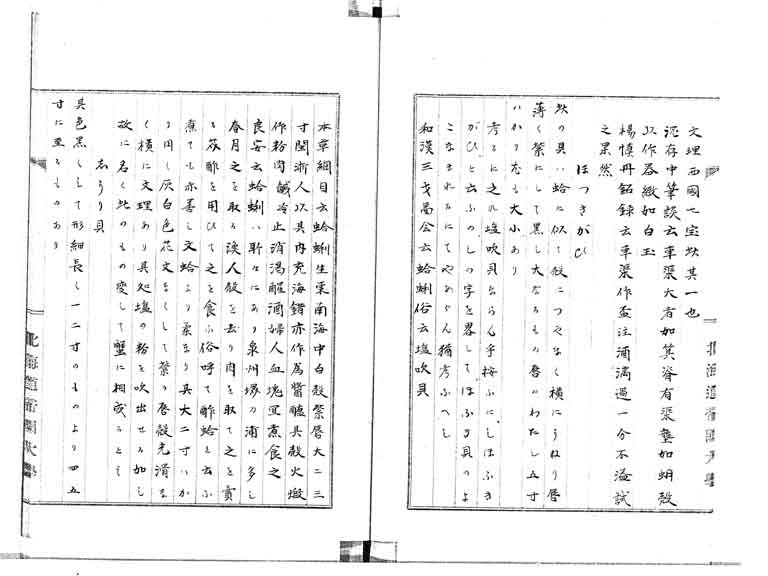 文理西國七宝此其一也
沈存中筆談云車渠大者如箕脊有渠壟如蚶殻
以作器緻如白玉
楊慎丹鉛録云車渠作盃注酒満過一分不溢試
之果然
ほつきがひ
此の貝ハ蛤に似て殻につやなく横にうねり唇
薄く紫にして黒し大なるもの唇のわたし五寸
ハかり尤も大小あり
考るに之れ塩吹貝ならん乎按ふにしほふき
がひと云ふのしの字を畧してほふき貝のよ
こなまれるにてやあらん猶考ふへし
和漢三才圖会云蛤蜊俗云塩吹貝
本草綱目云蛤蜊生東南海中白殻紫唇大二三
寸閩浙人以其肉充海錯亦作為醤醢其殻火煅
作粉肉鹹冷止消渇醒酒婦人血塊宜煮食之
良安云蛤蜊ハ処々にあり泉州堺の浦に多し
春月之を取る漁人殻を去り肉を取て之を賣
る芥酢を用ひて之を食ふ俗呼て酢蛤と云ふ
煮ても亦善し文蛤より柔なり其大二寸ハか
り円し灰白色花文なくして紫の唇殻光滑な
く横に文理あり其処塩の粉を吹出せる如し
故に名く此のもの変して蟹に相成るとそ
しうり貝
其色黒くして形細長く一二寸のものより四五
寸に至るものあり
北海道帝國大學